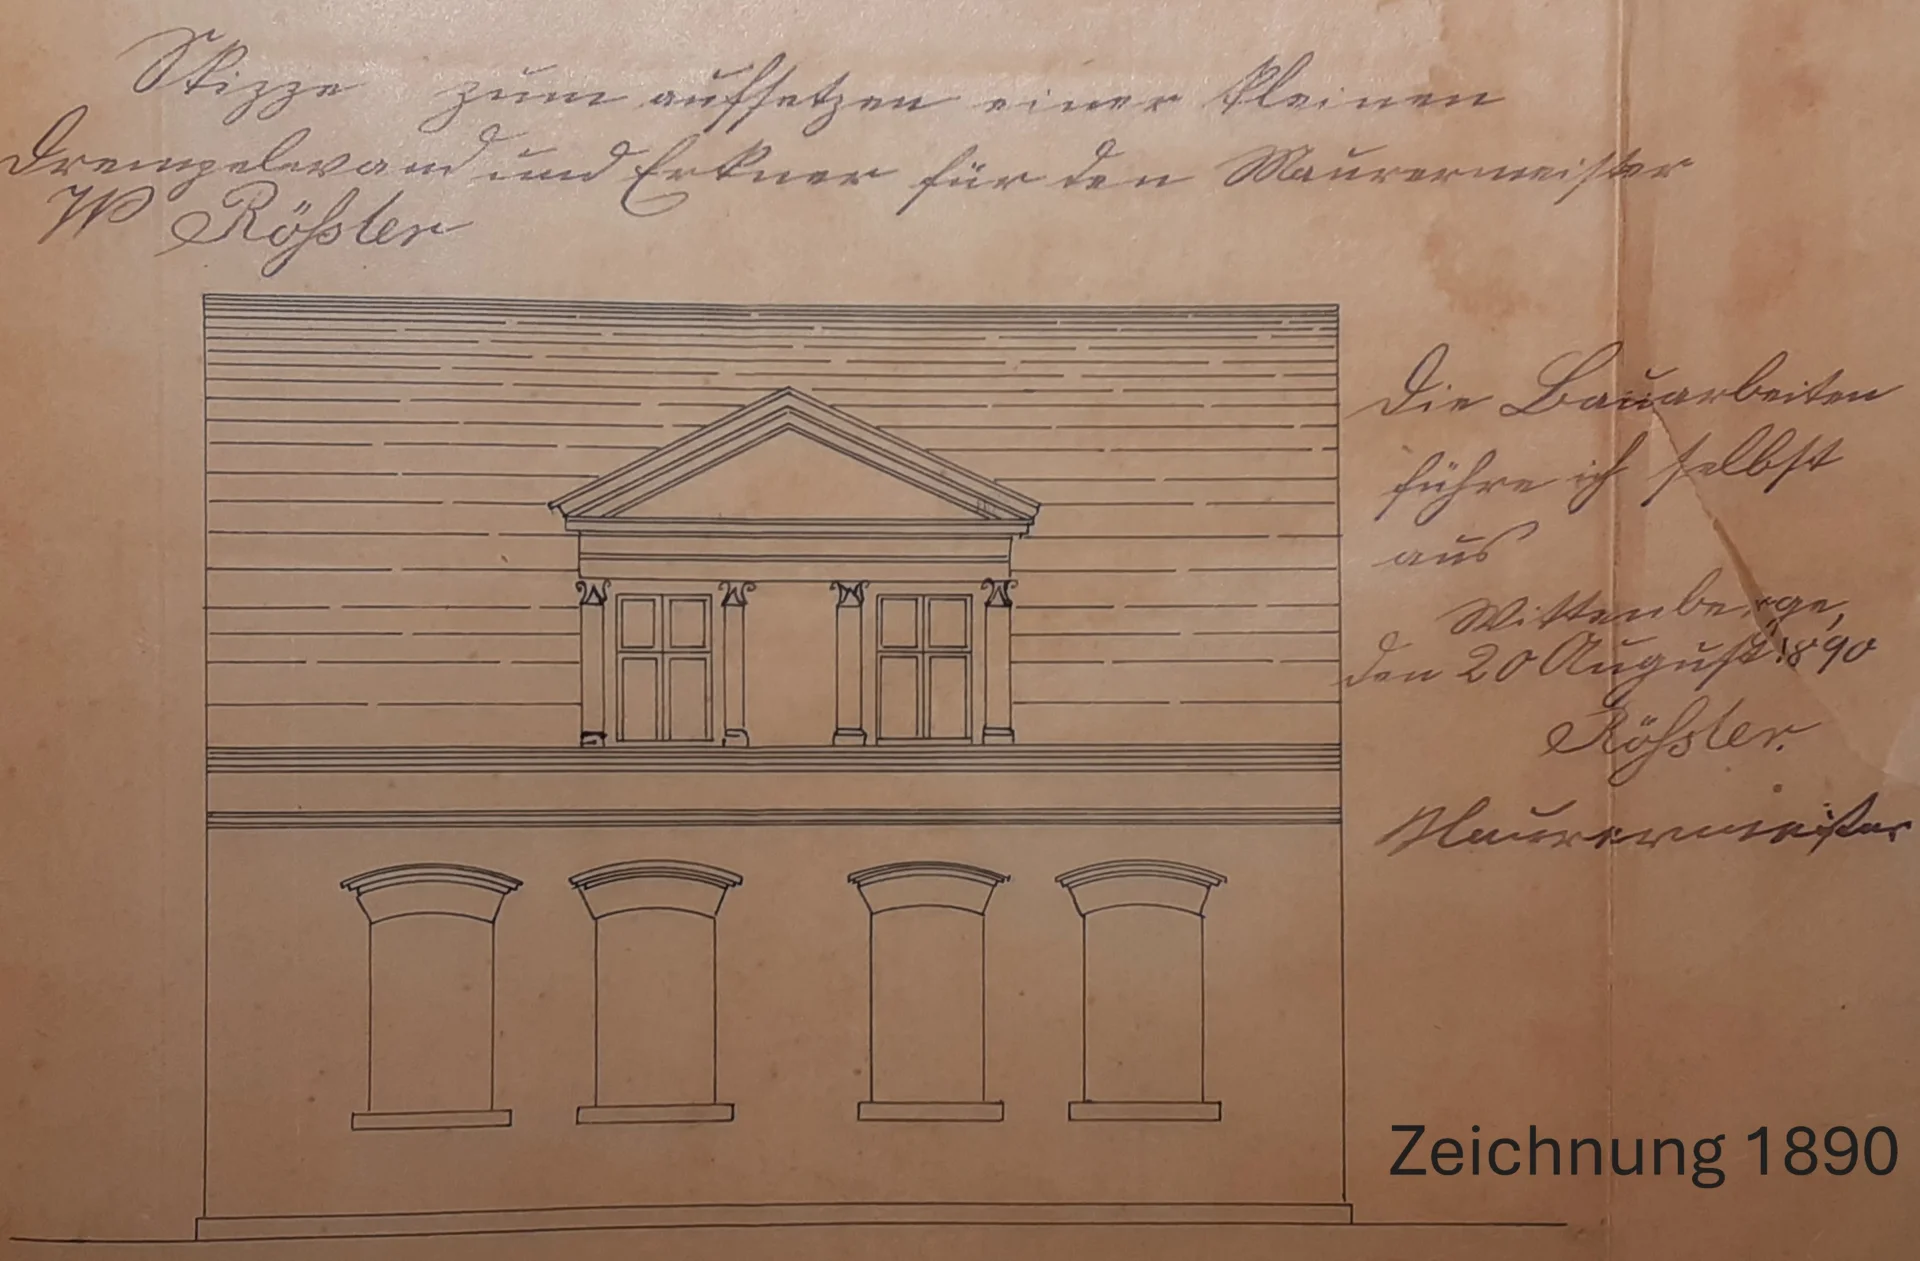 Skizze zum aufsetzen einer kleinen
Drempelwand und Erkner für den Maurermeister
W Rößler
Die Bauarbeiten
führe ich selbst
aus
Wittenberge,
den 20 August 1890
Rößler.
Maurermeister
Zeichnung 1890